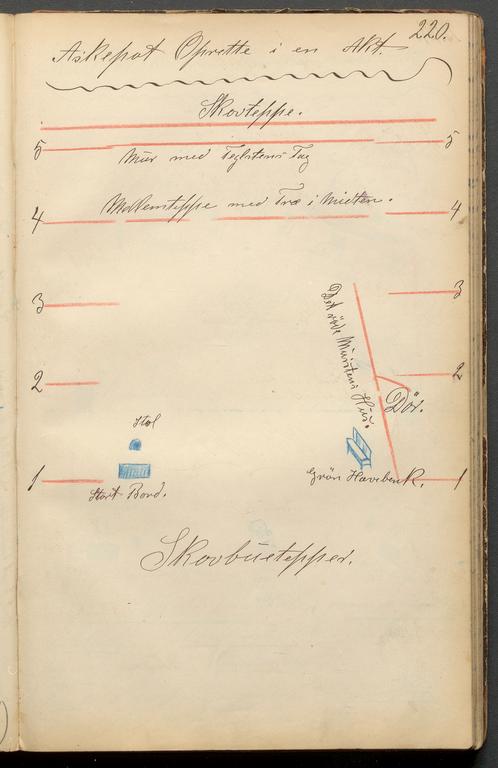 220.
Askepot Oprette i en Akt.
Skovteppe.
5 5
Mur med Teglstens Tag
4 Mellemteppe med Træ i Midten. 4
3 3
Det røde Murstens Hus.
2 2
Dör.
Stol
1 1
Stort Bord.
Grön Havebenk.
Skovbuetepper.